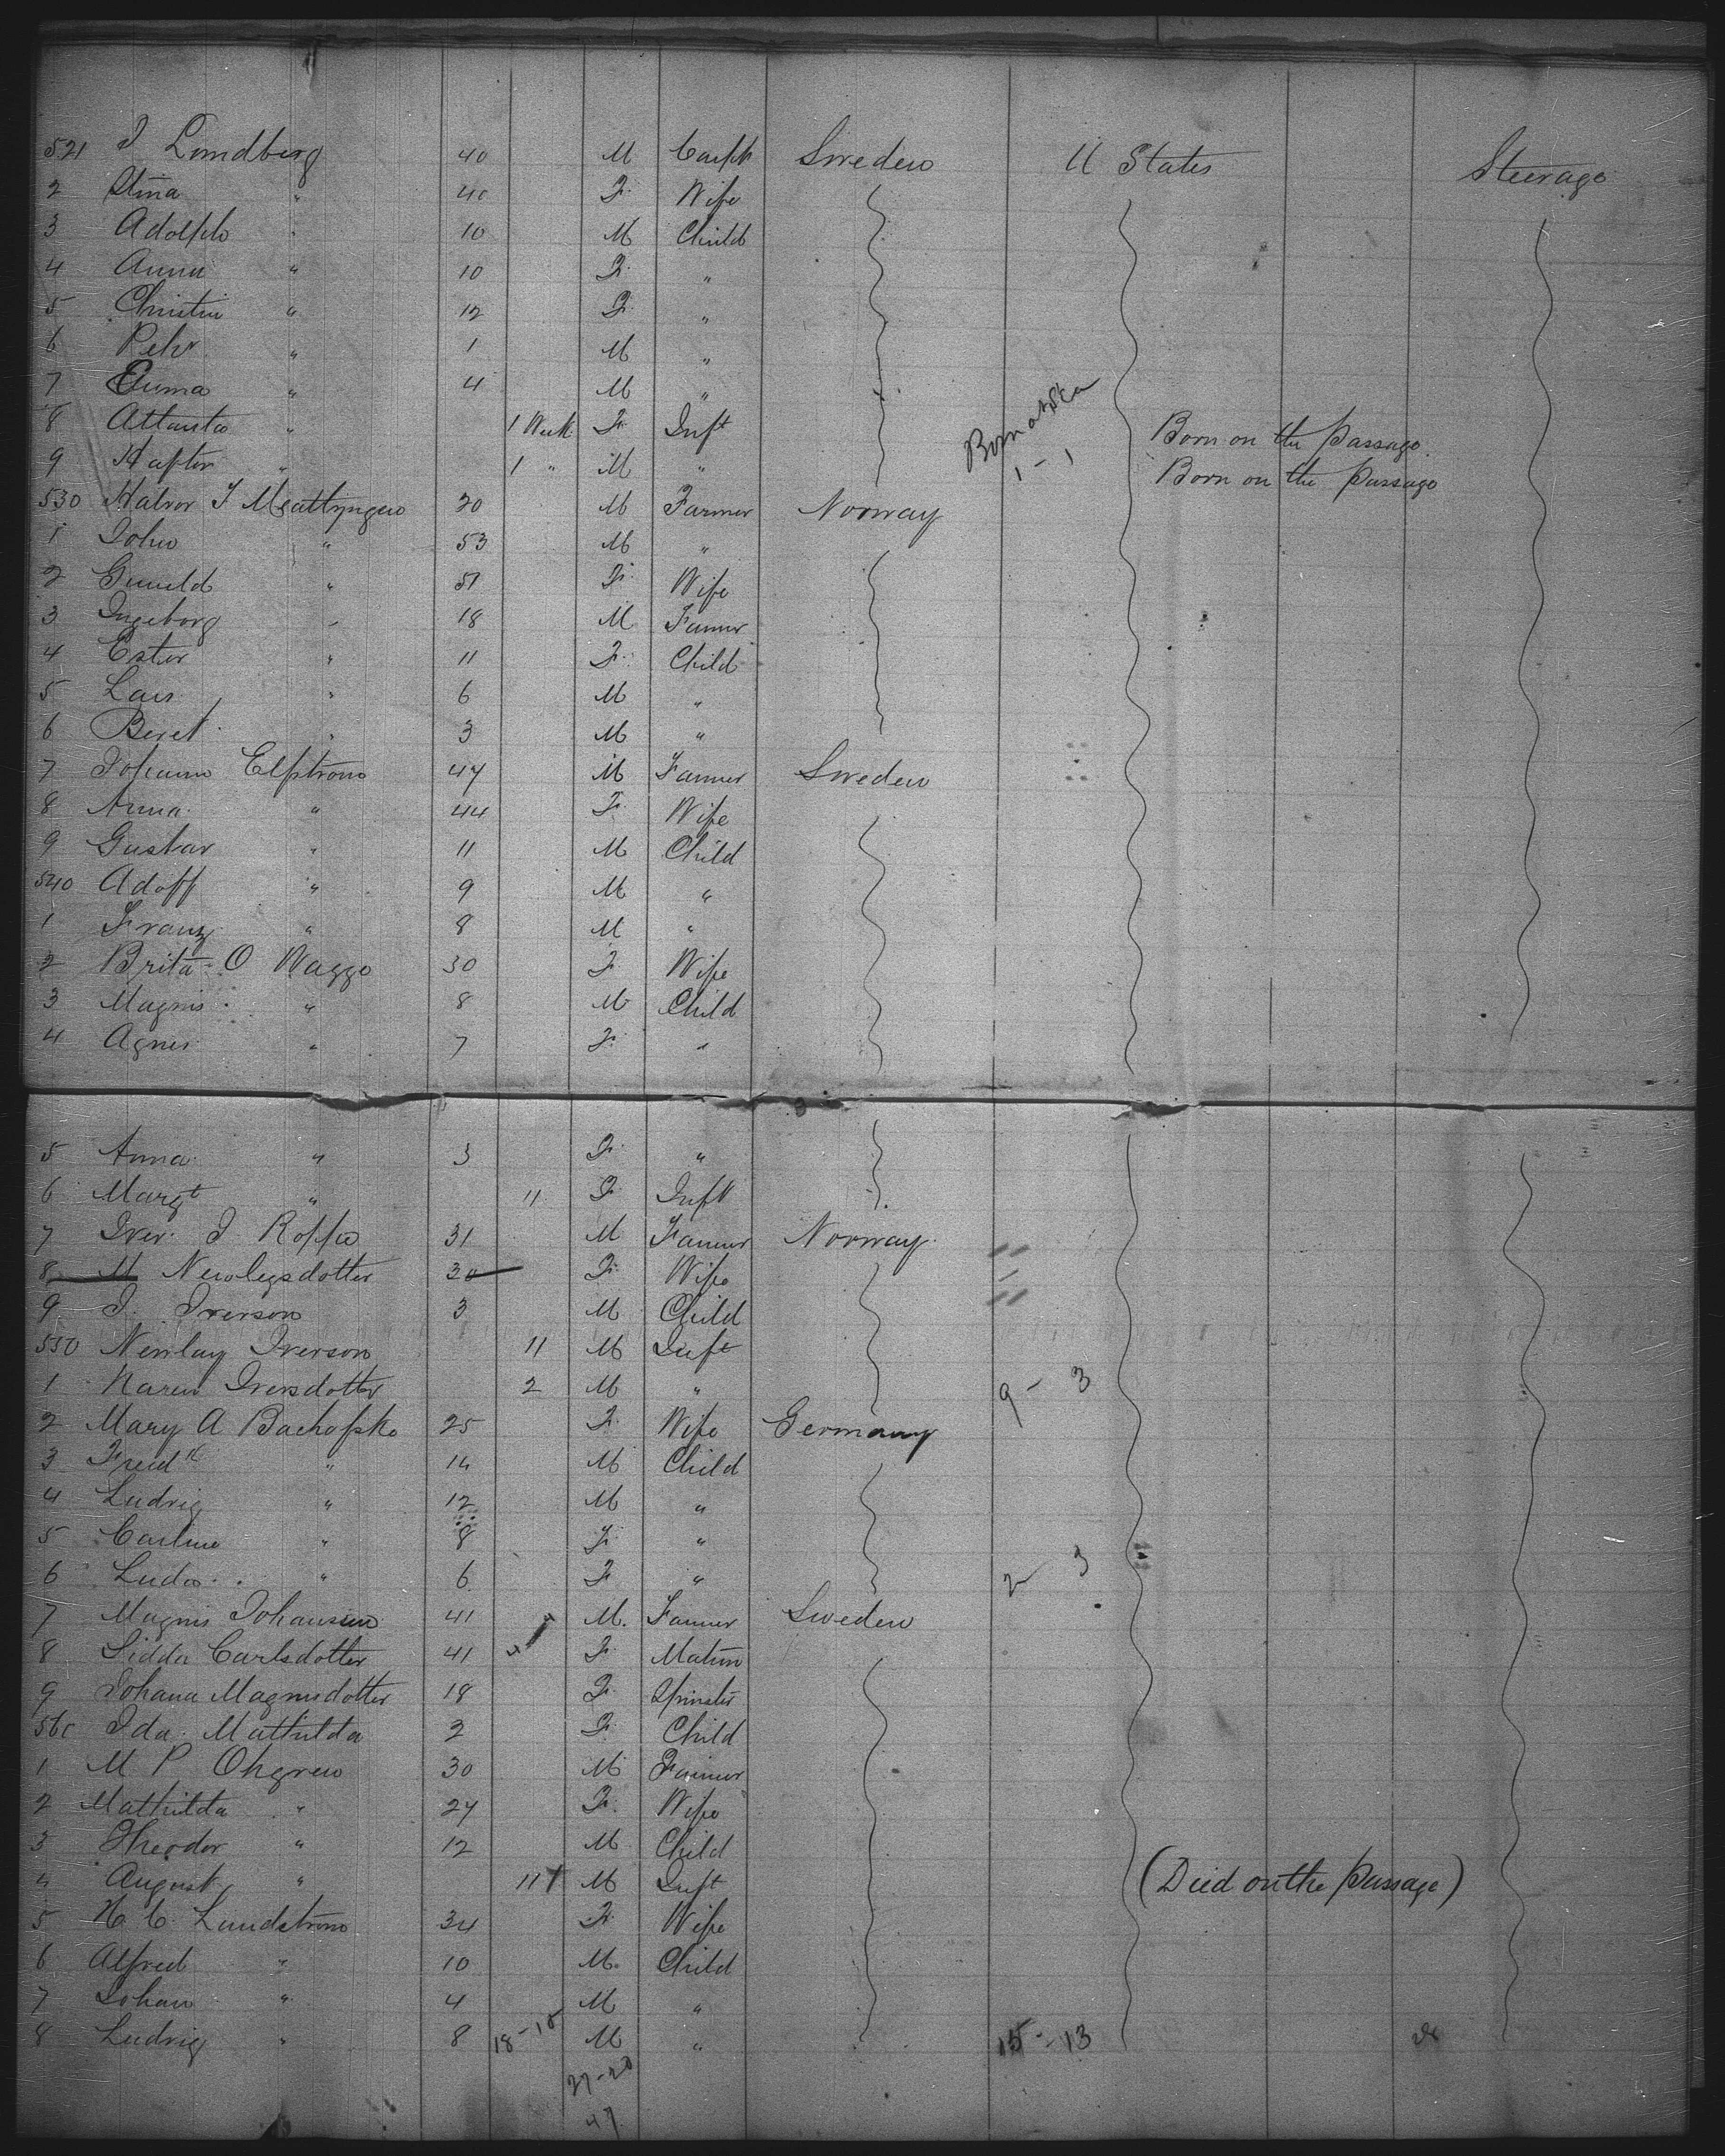 521 J Lundberg 40 M Carpt Sweden U States Steerage
2 Stina " 40 F Wife
3 Adolph " 10 M Child
4 Anna " 10 F "
5 Christin " 12 F "
6 Pehr " 1 M "
7 Emma " 4 M "
8 Atlanta " 1 Week F Inft Born at Sea Born on the passage
9 " 1 " M " 1 - 1 Born on the passage
530 Halvor J 20 M Farmer Norway
1 John " 53 M "
2 Gunild " 51 F Wife
3 Ingeborg " 18 M Farmer
4 Ester " 11 F Child
5 Lars " 6 M "
6 Beret " 3 M "
7 Johann Elfstrom 47 M Farmer Sweden
8 Anna " 44 F Wife
9 Gustav " 11 M Child
540 Adoff " 9 M "
1 Franz " 8 M "
2 Brita O Wagge 30 F Wife
3 Magnis " 8 M Child
4 Agnes " 7 F "
5 Anna " 3 F "
6 Margt " 11 F Inft
7 Iver J 31 M Farmer Norway
8 M 30 F Wife
9 I. Iverson 3 M Child
550 Iverson 11 M Inft
1 Karen Iversdotter 2 M " 9 - 3
2 Mary A 25 F Wife Germany
3 Fredk " 14 M Child
4 Ludvig " 12 M "
5 Carline " 8 F "
6 " 6 F " 2 3
7 Magnis Johansen 41 M. Farmer Sweden
8 Sidda Carlsdotter 41 F Matron
9 Johana Magnusdotter 18 F Spinster
560 Ida Mathilda 2 F Child
1 M P Ohgren 30 M Farmer
2 Mathilda " 24 F Wife
3 Theodor " 12 M Child
4 August " 11 M Inft (Died on the passage)
5 H. C. Lundstrom 34 F Wife
6 Alfred " 10 M. Child
7 Johan " 4 M "
8 Ludvig " 8 18-15 M " 15 - 13
27-20
47